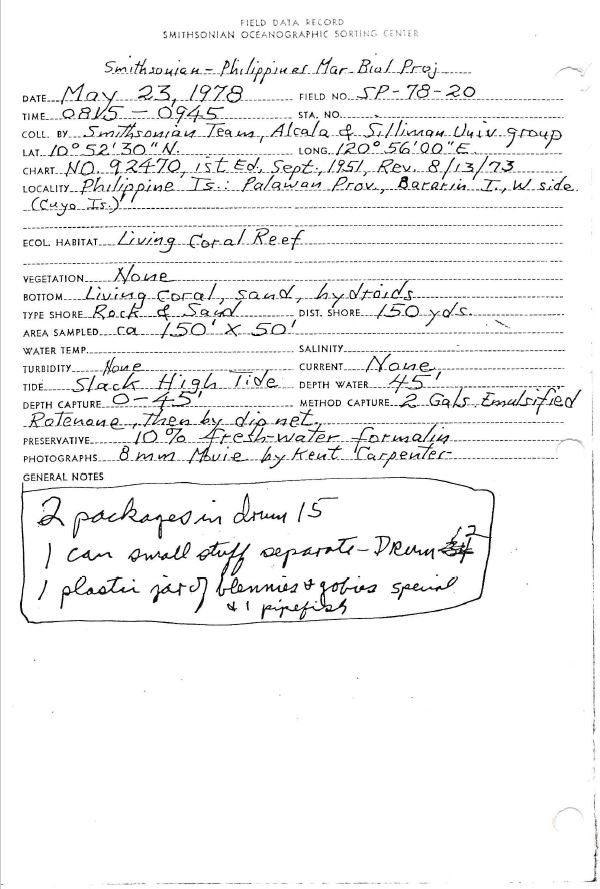 FIELD DATA RECORD
SMITHSONIAN OCEANOGRAPHIC SORTING CENTER
Smithsonian - Philippines Mar. Biol Proj
DATE May 23, 1978 FIELD NO. SP-78-20
TIME 0815 - 0945 STA. NO.
COLL. BY Smithsonian Team, Alcala & Silliman Univ. group
LAT. 10° 52' 30" N. LONG. 120° 56' 00" E.
CHART NO. 92470, 1st Ed. Sept., 1951, Rev. 8/13/73
LOCALITY Philippine Is.: Palawan Prov., Bararin I., W side
(Cuyo Is.)
ECOL. HABITAT Living Coral Reef
VEGETATION None
BOTTOM Living Coral, sand, hydroids
TYPE SHORE Rock & Sand DIST. SHORE 150 yds.
AREA SAMPLED ca 150' X 50'
WATER TEMP. SALINITY
TURBIDITY None CURRENT None
TIDE Slack High Tide DEPTH WATER 45'
DEPTH CAPTURE 0-45' METHOD CAPTURE 2 Gals. Emulsified
Rotenone, then by dip net.
PRESERVATIVE 10% fresh-water formalin
PHOTOGRAPHS 8mm Movie by Kent Carpenter
GENERAL NOTES
2 packages in drum 15
1 can small stuff separate - Drum 12
1 plastic jar of blennies & gobies special
& 1 pipefish